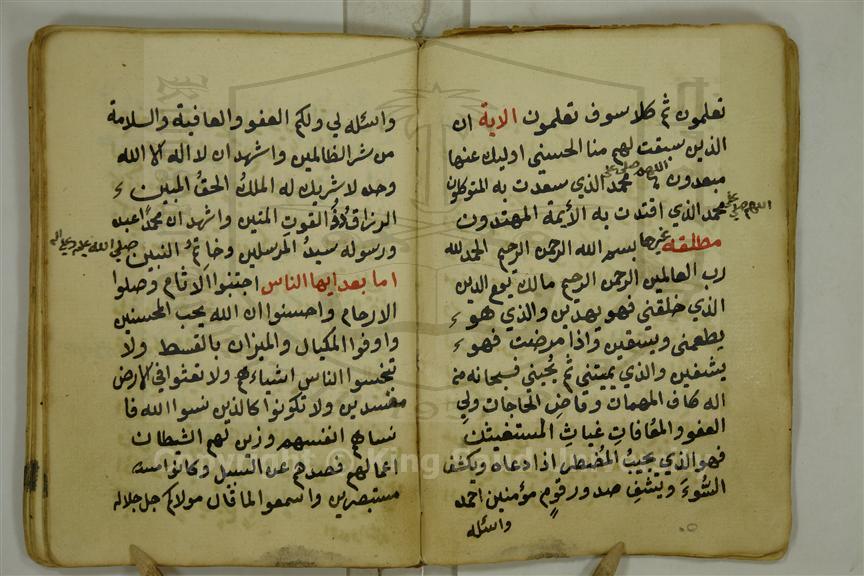 تعلمون ثم كلا سوف تعلمون الاية ان
الذين سبقت لهم منا الحسني اوليك عنها
مبعدون اللهم صلي على محمد الذي سعدت به المتوكلون
اللهم صلي على محمد الذي اقتدت به الأيمة المهتدون
مطلقه غيرها بسم الله الرحمن الرحيم الحمد لله
رب العالمين الرحمن الرحيم مالك يوم الدين
الذي خلقني فهو يهدين والذي هو
يطعمني ويسقين واذا مرضت فهو
يشفين والذي يميتني ثم يحيني فسبحانه من
اله كاف المهمات وقاض الحاجات ولي
العفو والمعافات غياث المستغيثين
فهو الذي يجيب المضطر اذا دعاه ويكشف
السوء ويشف صدور قوم مؤمنين احمد
واسئله
واسئله لي ولكم العفو والعافية والسلامة
من شر الظالمين واشهد ان لا اله الا الله
وحده لا شريك له الملك الحق المبين
الرزاق ذو القوت المتين واشهد ان محمدا عبده
ورسوله سيد المرسلين وخاتم النبين صلي الله عليه وعلي اله
اما بعد ايها الناس اجتنبوا الاثام وصلوا
الارحام واحسنوا ان الله يحب المحسنين
واوفوا المكيال والميزان بالقسط ولا
تبخسوا الناس اشياءهم ولا تعثوا في الارض
مفسدين ولا تكونوا كالذين نسوا الله فا
نساهم انفسهم وزين لهم الشيطان
اعمالهم فصدهم عن السبيل وكانوا
مستبصرين واسمعوا لما قال مولاكم جل جلاله
Copyright © King Saud University